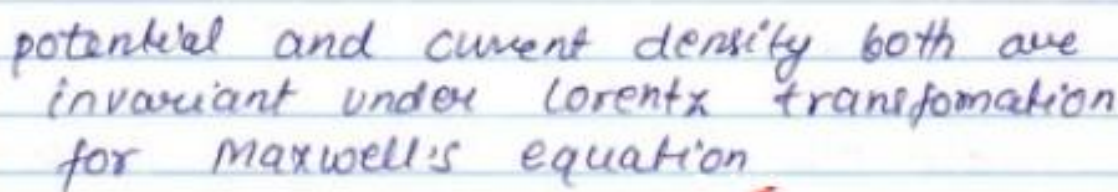 potential and current density both are
invariant under lorentz transfomation
for Maxwell's equation